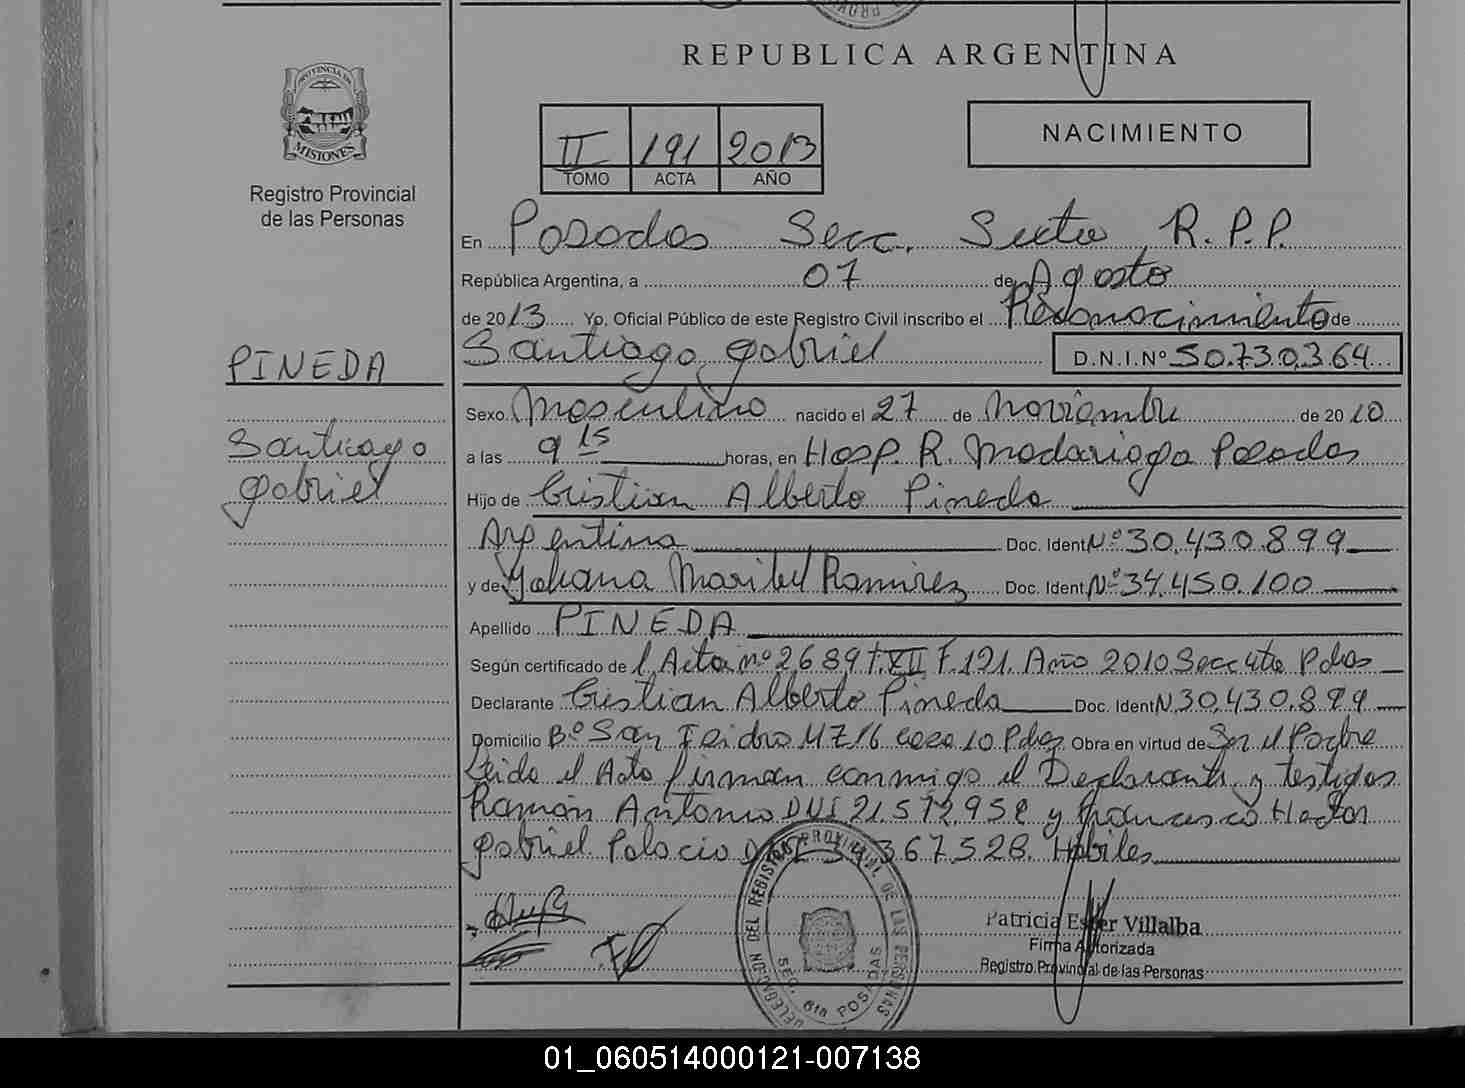 REPUBLICA ARGENTINA
PROVINCIA DE
MISIONES
Registro Provincial
de las Personas
II 191 2013
TOMO ACTA AÑO
NACIMIENTO
En Posadas Secc. Sexta R.P.P.
República Argentina, a 07 de Agosto
de 2013 Yo, Oficial Público de este Registro Civil inscribo el Reconocimiento de
Santiago gabriel D.N.I.Nº 50.730.364
PINEDA
Santiago
gabriel
Sexo Masculino nacido el 27 de Noviembre de 2010
a las 9 15 horas, en Hosp. R. Madariaga Posadas
Hijo de Cristian Alberto Pineda
Argentina Doc. Ident Nº 30.430.899
y de Yohana Maribel Ramirez Doc. Ident Nº 34.450.100
Apellido PINEDA
Según certificado de Acta nº 2689 t. XII F. 121. Año 2010 Secc 4ta Pdas
Declarante Cristian Alberto Pineda Doc. Ident N 30.430.899
Domicilio Bº San Isidro MZ 16 casa 10 Pdas Obra en virtud de Ser el Padre
Leida el Acta firman conmigo el Declarante y testigos
Ramón Antonio DNI 21.572.952 y Francisco Hector
gabriel Palacio 367528. Habiles
DELEGACION DEL REGISTRO PROVINCIAL DE LAS PERSONAS
SEC. 6ta POSADAS
Patricia Ester Villalba
Firma Autorizada
Registro Provincial de las Personas
01_060514000121-007138